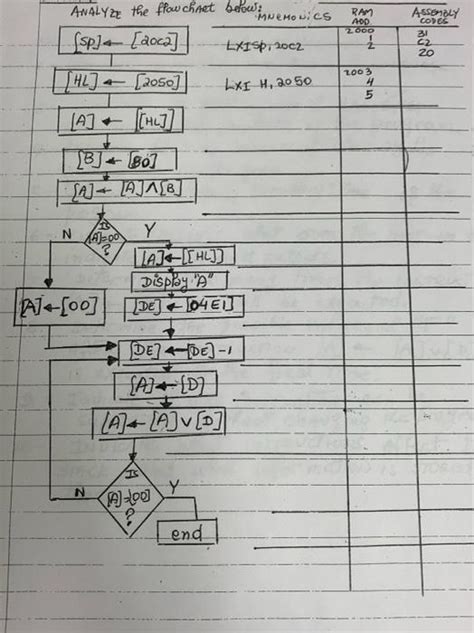 ANALYZE the flowchart below:
MNEMONICS
RAM ADD.
ASSEMBLY CODES
[SP]← [20C2]
LXISP, 20C2
2000
1
2
31
C2
20
[HL]← [2050]
LXI H, 2050
2003
4
5
[A] ← [[HL]]
[B] ← [80]
[A]← [A]∧[B]
Is [A]=00 ?
N
Y
[A]←[[HL]]
Display "A"
[A]←[00]
[DE] ← [04E1]
[DE] ← [DE]-1
[A]← [D]
[A] ← [A] ∨ [D]
Is
N
Y
?
end